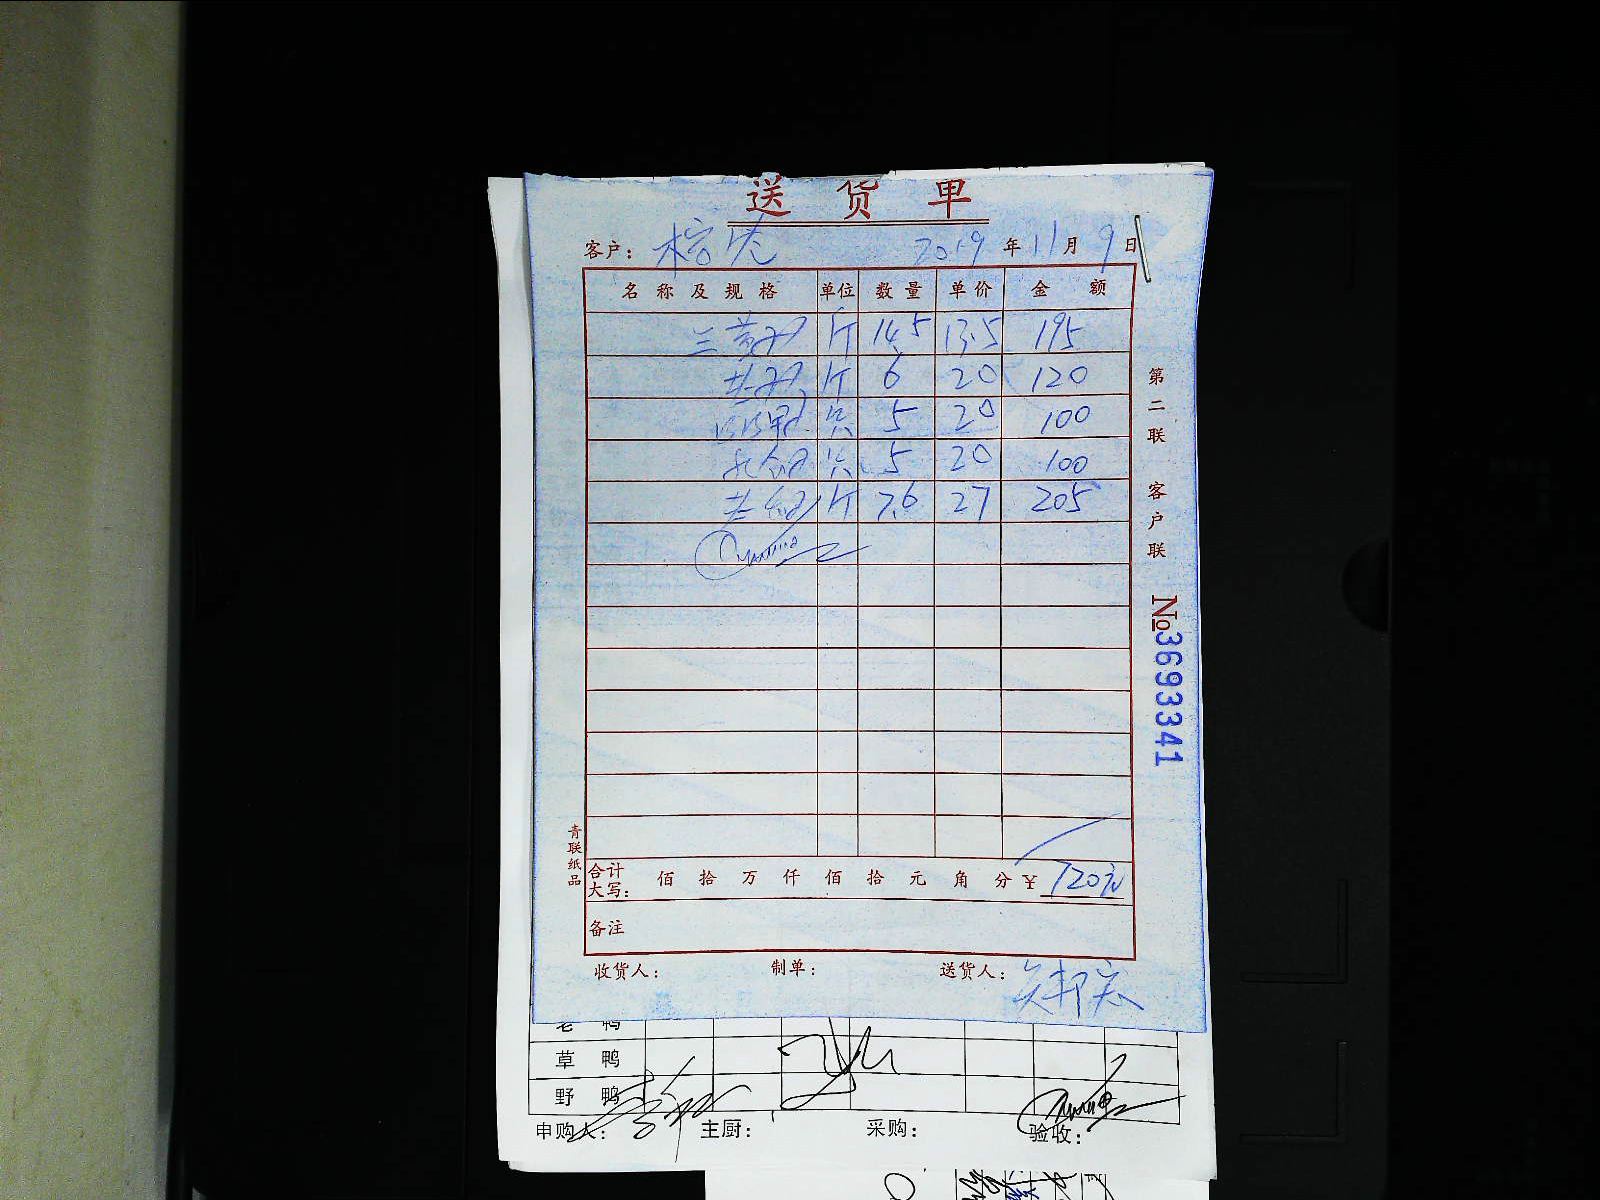 送货单
客户： 2019 年 11 月 9 日
名称及规格 单位 数量 单价 金额
三黄鸡 斤 14.5 13.5 195
斤 6 20 120
只 5 20 100
只 5 20 100
斤 7.6 27 205
合计大写： 佰 拾 万 仟 佰 拾 元 角 分 ¥ 720元
备注
收货人： 制单： 送货人：
第二联 客户联
No3693341
青联纸品
老鸭
草鸭
野鸭
申购人： 主厨： 采购： 验收：